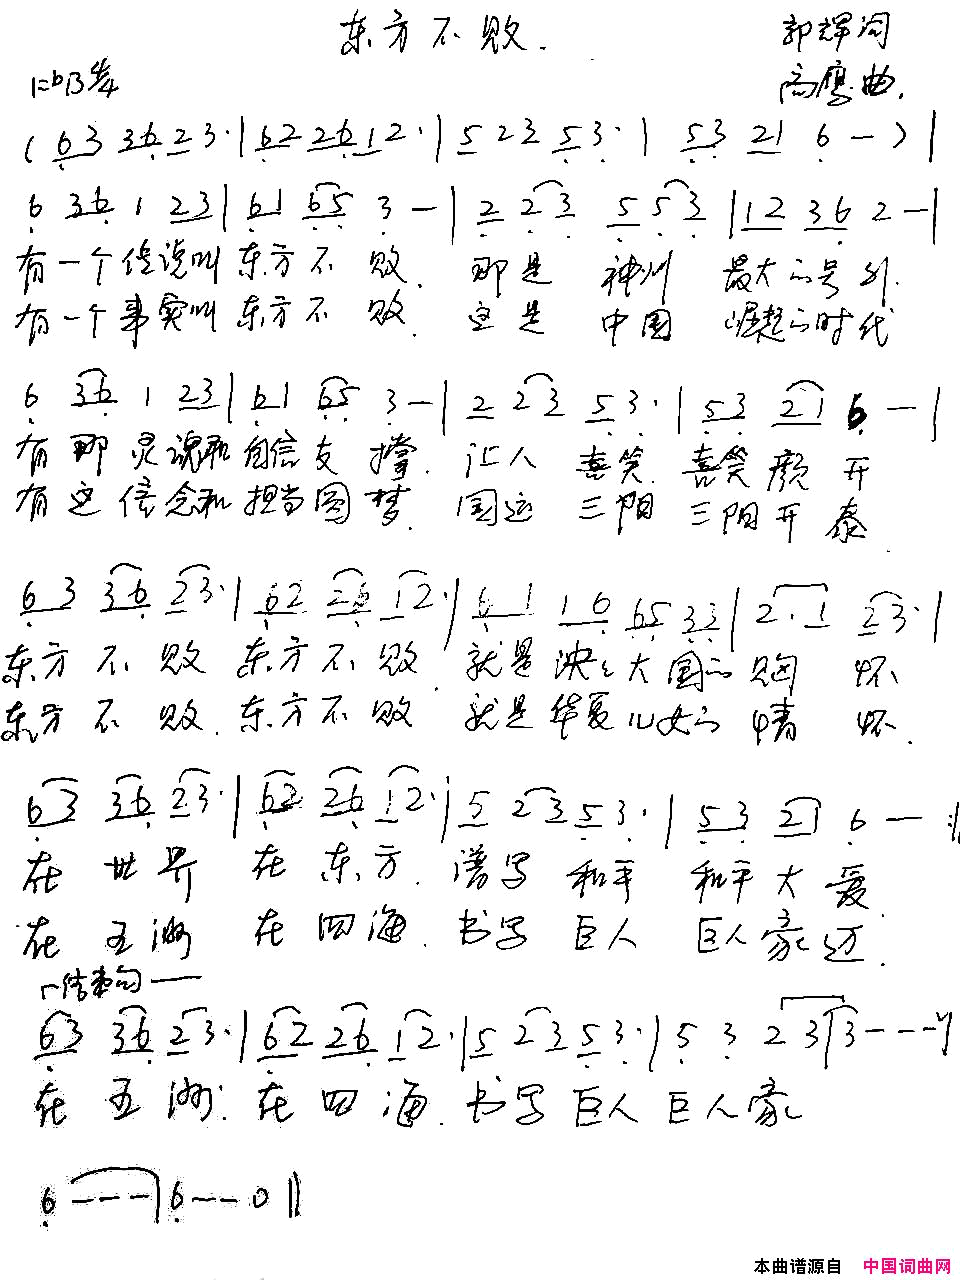 东方不败.
郭辉词
1=bB 4/4
高鹰曲.
( 6 3 3 6 2 3· | 6 2 2 6 1 2· | 5 2 3 5 3· | 5 3 2 1 6 — ) |
6 3 6 1 2 3 | 6 1 6 5 3 — | 2 2 3 5 5 3 | 1 2 3 6 2 — |
有一个传说叫东方不败. 那是神州最大的号外.
有一个事实叫东方不败. 这是中国崛起的时代
6 3 6 1 2 3 | 6 1 6 5 3 — | 2 2 3 5 3· | 5 3 2 1 6 — |
有那灵魂和自信支撑. 让人喜笑. 喜笑颜开
有这信念和担当圆梦. 国运三阳三阳开泰.
6 3 3 6 2 3· | 6 2 2 6 1 2· | 6 1 1 6 6 5 3 3 | 2· 1 2 3· |
东方不败 东方不败. 就是泱泱大国的胸怀
东方不败. 东方不败 就是华夏儿女的情怀.
6 3 3 6 2 3· | 6 2 2 6 1 2· | 5 2 3 5 3· | 5 3 2 1 6 — :||
在世界在东方. 谱写和平 和平大爱.
在五洲 在四海. 书写巨人 巨人豪迈.
结束句 —
6 3 3 6 2 3· | 6 2 2 6 1 2· | 5 2 3 5 3· | 5 3 2 3 | 3 - - -
在五洲. 在四海. 书写巨人巨人豪
6 - - - | 6 - - 0 ||
本曲谱源自 中国词曲网